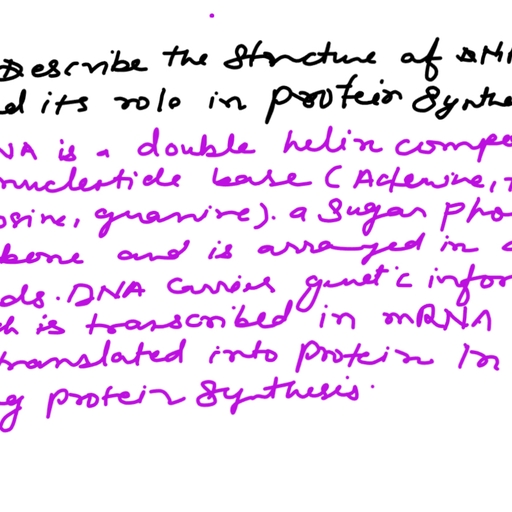 Describe the structure of DNA
d its role in protein Synthe
NA is a double helix compo
nucleotide base (Adenine, 
osine, guanine). a Sugar Pho
bone and is arranged in a
ds. DNA carries genetic infor
ch is transcribed in mRNA
translated into protein in
g protein Synthesis.